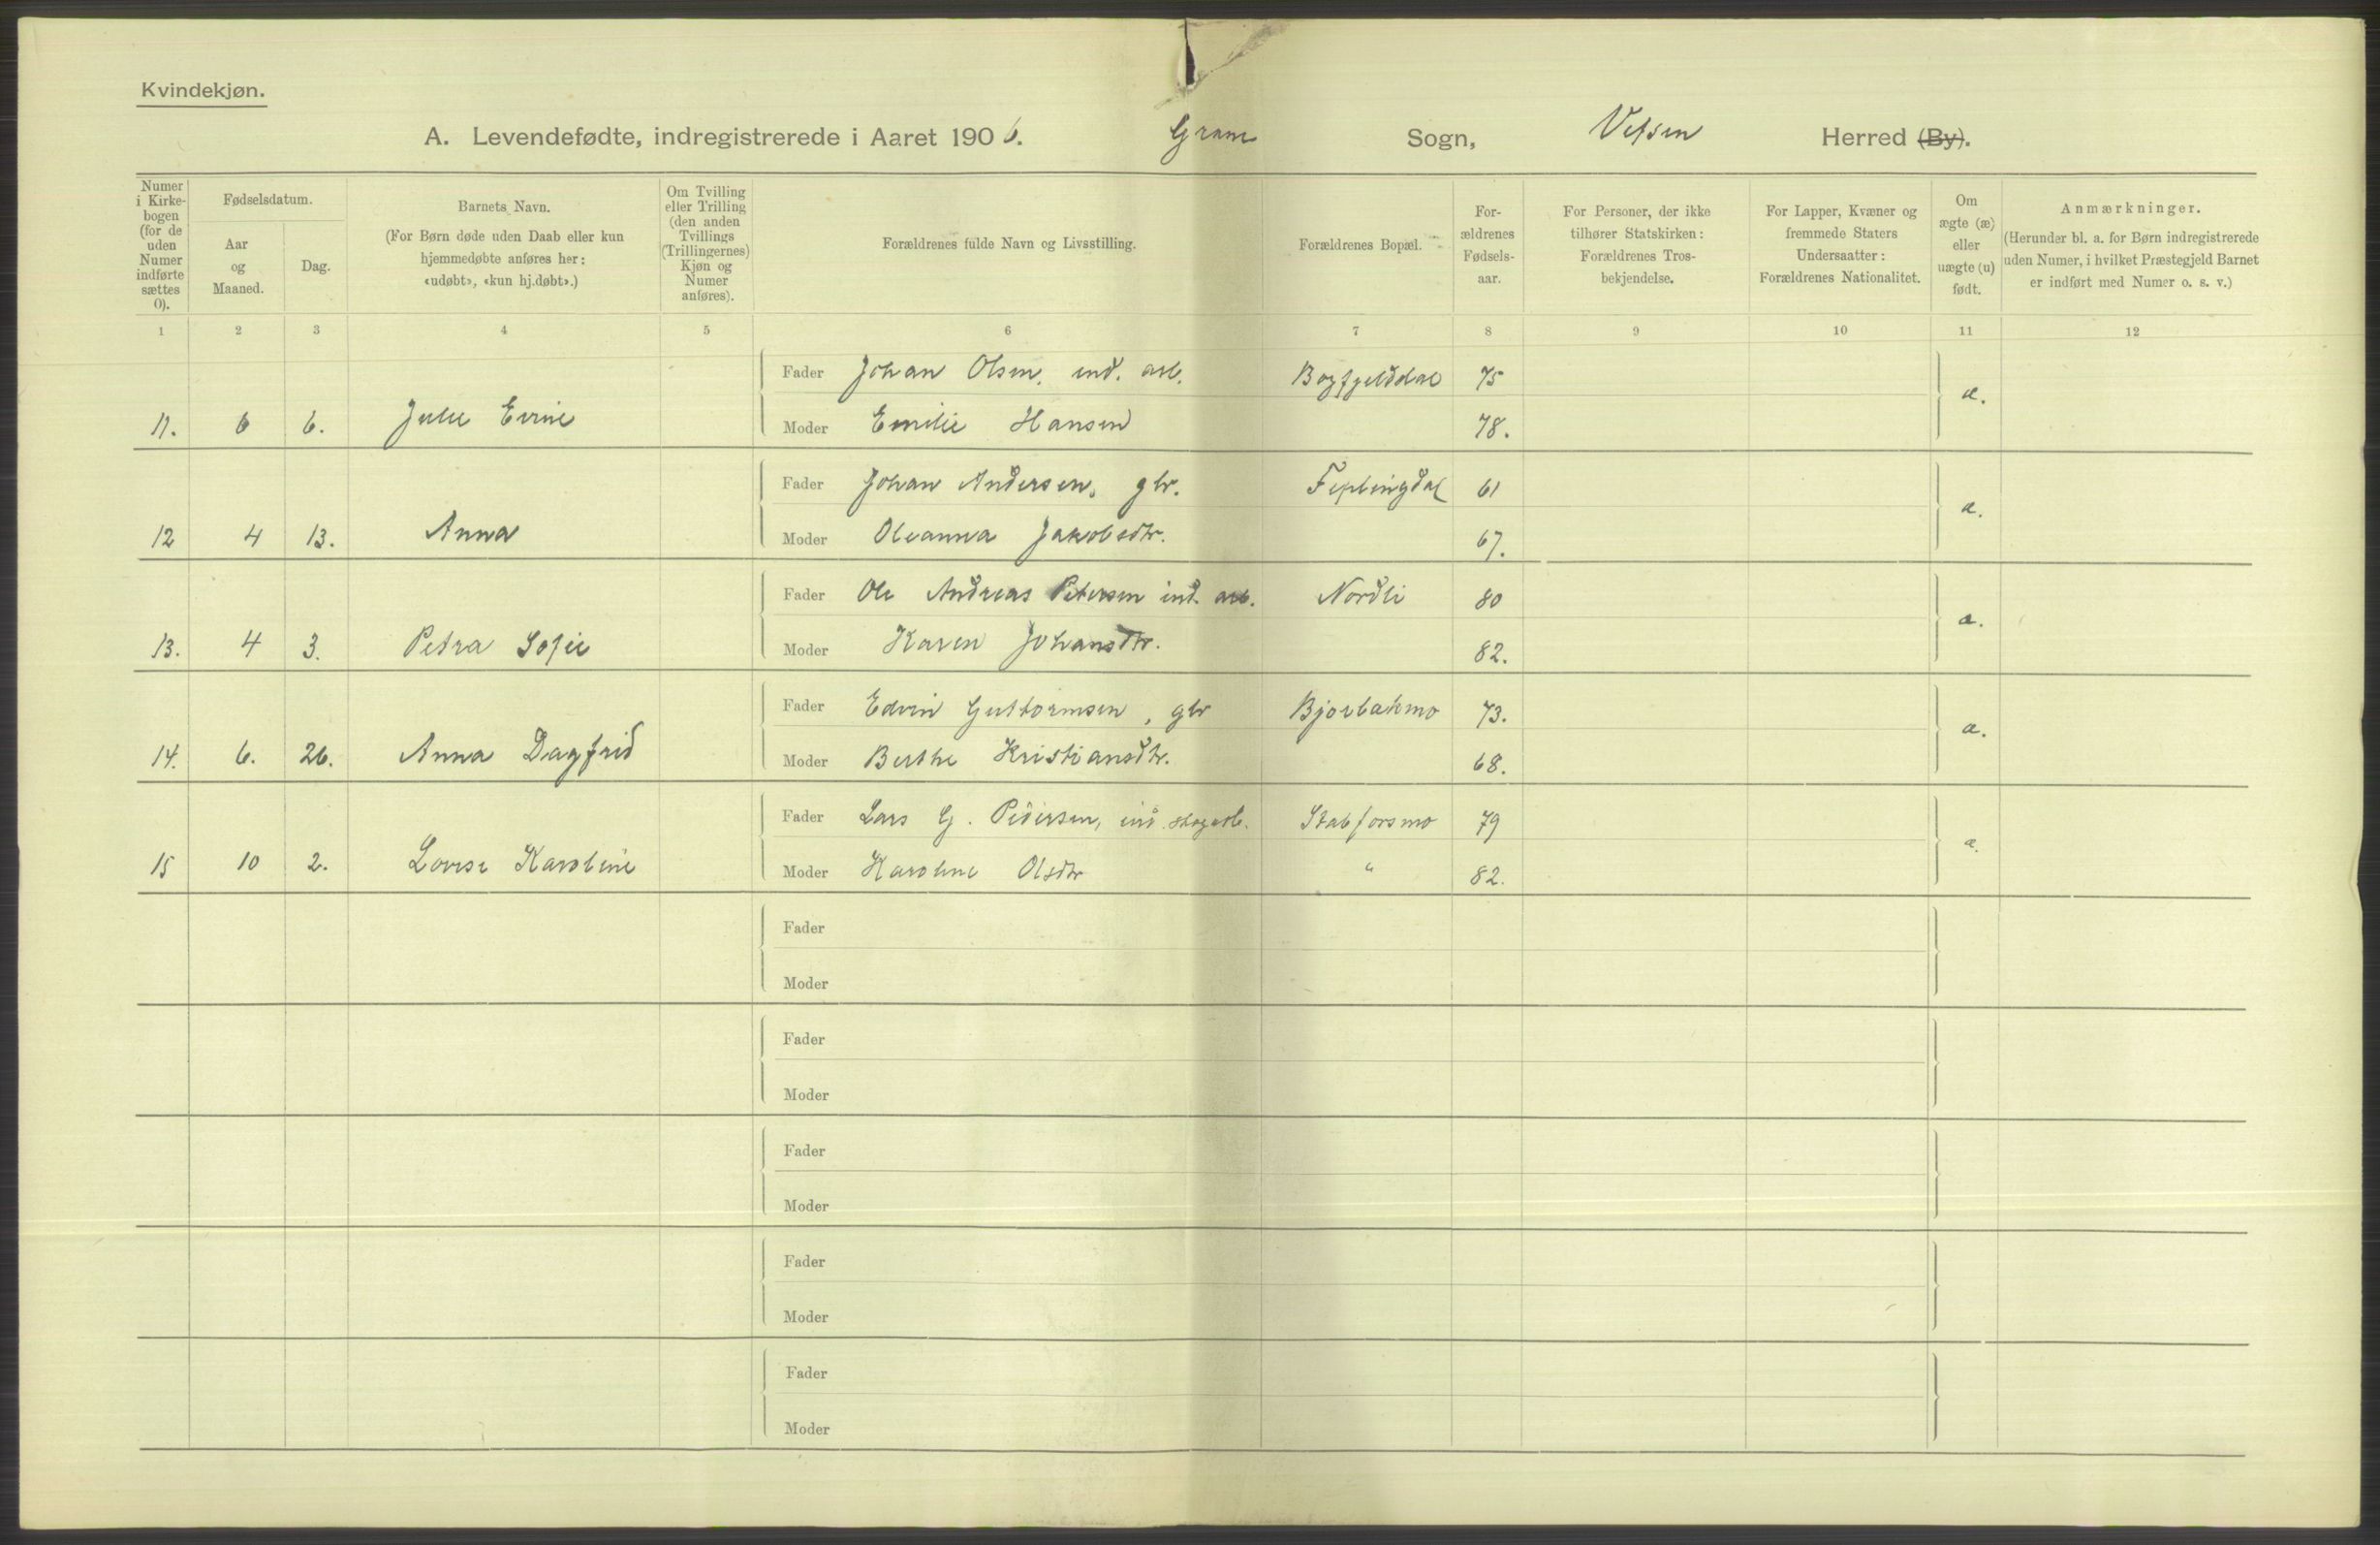 Kvindekjøn.
A. Levendefødte, indregistrerede i Aaret 1906. Grane Sogn, Vefsen Herred (By).
Numer i Kirkebogen (for de uden Numer indførte sættes 0).
Fødselsdatum.
Aar og Maaned.
Dag.
Barnets Navn.
(For Børn døde uden Daab eller kun hjemmedøbte anføres her: «udøbt», «kun hj.døbt».)
Om Tvilling eller Trilling (den anden Tvillings (Trillingernes) Kjøn og Numer anføres).
Forældrenes fulde Navn og Livsstilling.
Forældrenes Bopæl.
Forældrenes Fødselsaar.
For Personer, der ikke tilhører Statskirken: Forældrenes Trosbekjendelse.
For Lapper, Kvæner og fremmede Staters Undersaatter: Forældrenes Nationalitet.
Om ægte (æ) eller uægte (u) født.
Anmærkninger.
(Herunder bl. a. for Børn indregistrerede uden Numer, i hvilket Præstegjeld Barnet er indført med Numer o. s. v.)
1 2 3 4 5 6 7 8 9 10 11 12
Fader Johan Olsen, ind. arb. 75
11. 6 6. Julie Moder Emilie Hansen 78. æ.
Fader Johan Andersen, gbr. Fiplingdal 61
12 4 13. Anna Moder Oleanna Jakobsdtr. 67. æ.
Fader Ole Andreas Petersen ind. arb. Nordli 80
13. 4 3. Petra Sofie Moder Karen Johansdtr. 82. æ.
Fader Edvin Guttormsen, gbr Bjorbakmo 73.
14. 6. 26. Anna Dagfrid Moder Berthe Kristiansdtr. 68. æ.
Fader Lars G. Pedersen, ind. skogarb. Stabforsmo 79
15 10 2. Lovise Karoline Moder Karoline Olsdtr " 82. æ.
Fader
Moder
Fader
Moder
Fader
Moder
Fader
Moder
Fader
Moder